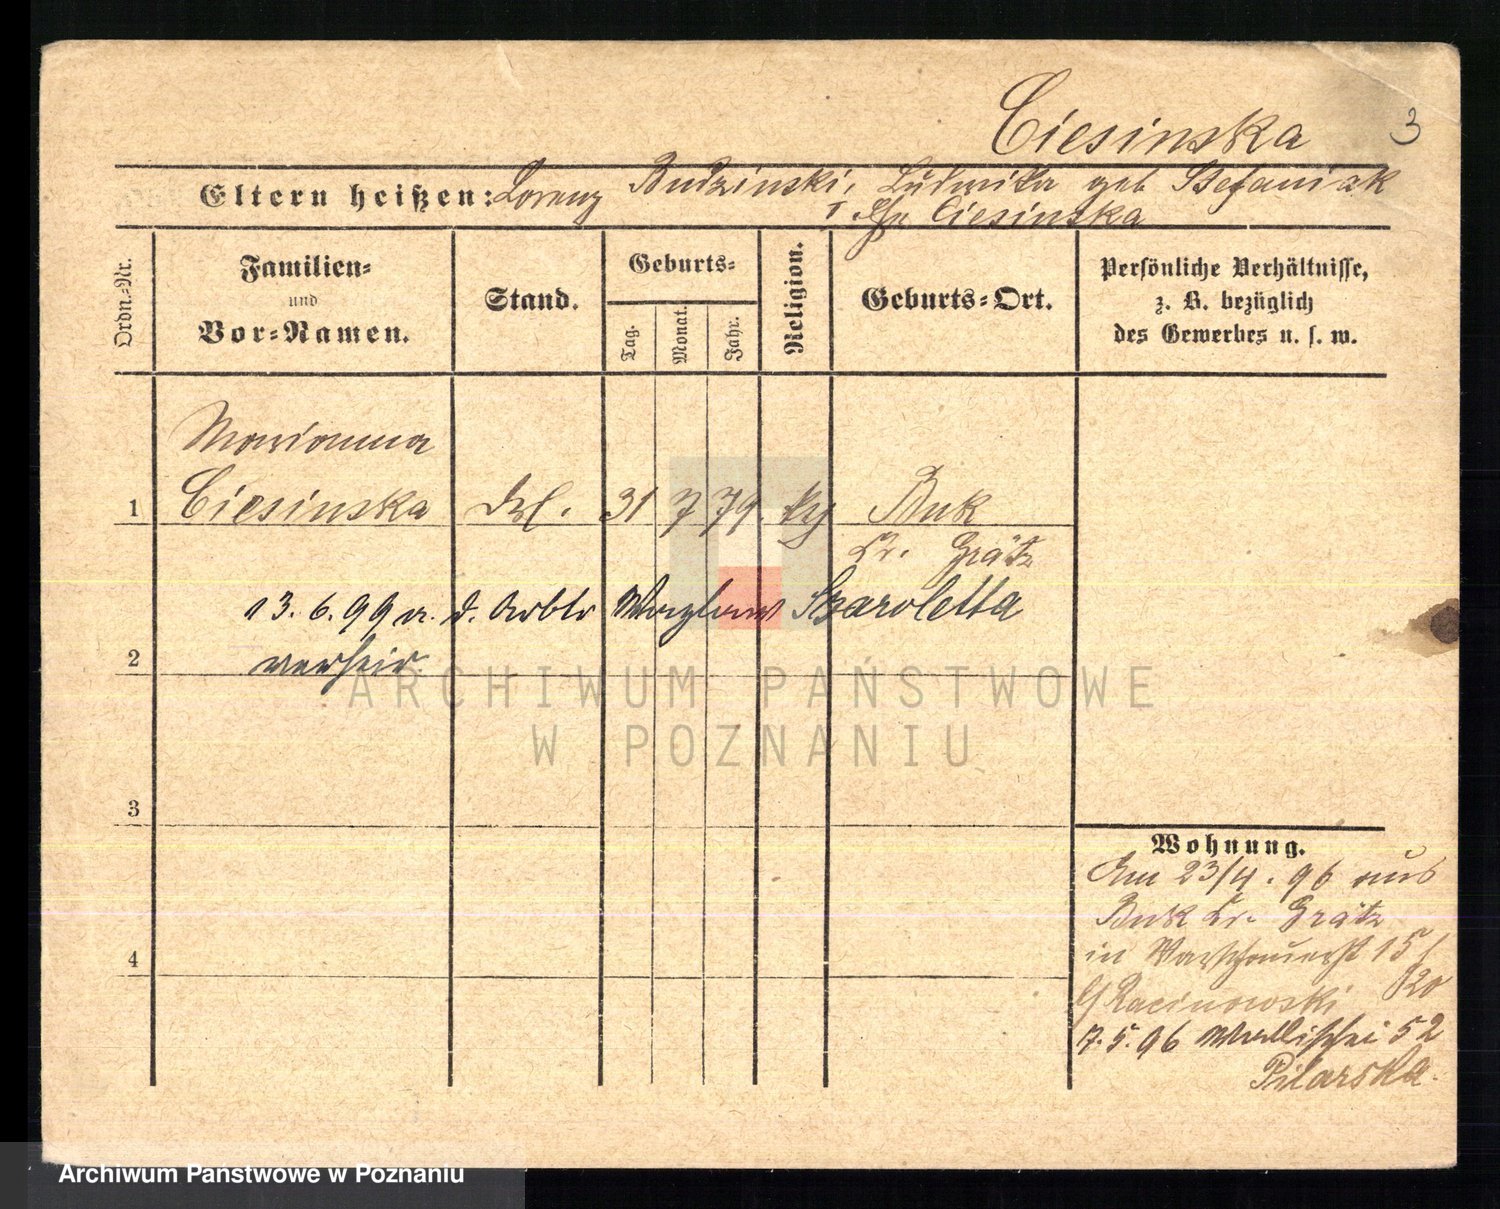 Ciesinska
3
Eltern heißen: Lorenz Budzinski, Ludwika geb Stefaniak
I. Ehe Ciesinska
Ordn.-Nr.
Familien-
und
Vor-Namen.
Stand.
Geburts-
Tag.
Monat.
Jahr.
Religion.
Geburts-Ort.
Persönliche Verhältnisse,
z. B. bezüglich
des Gewerbes u. s. w.
Marianna
1 Ciesinska 31 7 79. Buk
Kr. Grätz
13.6.99 m. d. Arbtr Szaroletta
2 verheir.
3
4
Wohnung.
Am 23/4. 96 aus
Buk Kr. Grätz
in Warschauerst 15 /
b/ Racinowski 820
7.5.96 Wallischei 52
Pilarska.
ARCHIWUM PAŃSTWOWE
W POZNANIU
Archiwum Państwowe w Poznaniu